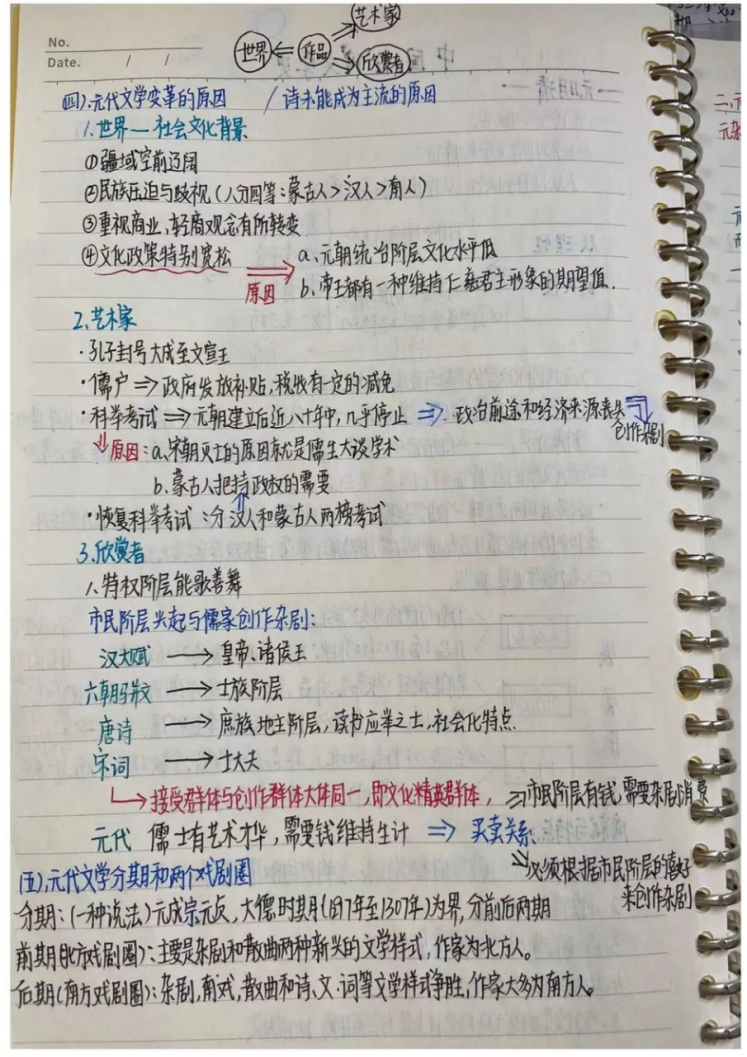 No.
Date. / /
艺术家
世界 ← 作品
欣赏者
(四).元代文学变革的原因 / 诗未能成为主流的原因
1.世界—社会文化背景
①疆域空前辽阔
②民族压迫与歧视(人分四等:蒙古人>汉人>南人)
③重视商业,轻商观念有所转变
④文化政策特别宽松 ⇒ a.元朝统治阶层文化水平低
原因 b.帝王都有一种维持仁慈君主形象的期望值.
2.艺术家
·孔子封号大成至文宣王
·儒户⇒政府发放补贴,税收有一定的减免
·科举考试⇒元朝建立后近八十年中,几乎停止⇒政治前途和经济来源丧失⇒
创作杂剧
⇓原因:a.宋朝灭亡的原因就是儒生大谈学术
b.蒙古人把持政权的需要
·恢复科举考试:分汉人和蒙古人两榜考试
3.欣赏者
1.特权阶层能歌善舞
市民阶层兴起与儒家创作杂剧:
汉大赋 → 皇帝、诸侯王
六朝骈文 → 士族阶层
唐诗 → 庶族地主阶层,读书应举之士,社会化特点.
宋词 → 士大夫
↳接受群体与创作群体大体同一,即文化精英群体,
⇒市民阶层有钱,需要杂剧消费
元代 儒士有艺术才华,需要钱维持生计 ⇒ 买卖关系
⇒必须根据市民阶层的喜好
来创作杂剧
(五).元代文学分期和两个戏剧圈
分期:(一种说法)元成宗元贞,大德时期(1297年至1307年)为界,分前后两期
前期(北方戏剧圈):主要是杂剧和散曲两种新兴的文学样式,作家为北方人。
后期(南方戏剧圈):杂剧,南戏,散曲和诗、文、词等文学样式争胜,作家大多为南方人。
二.元
元杂